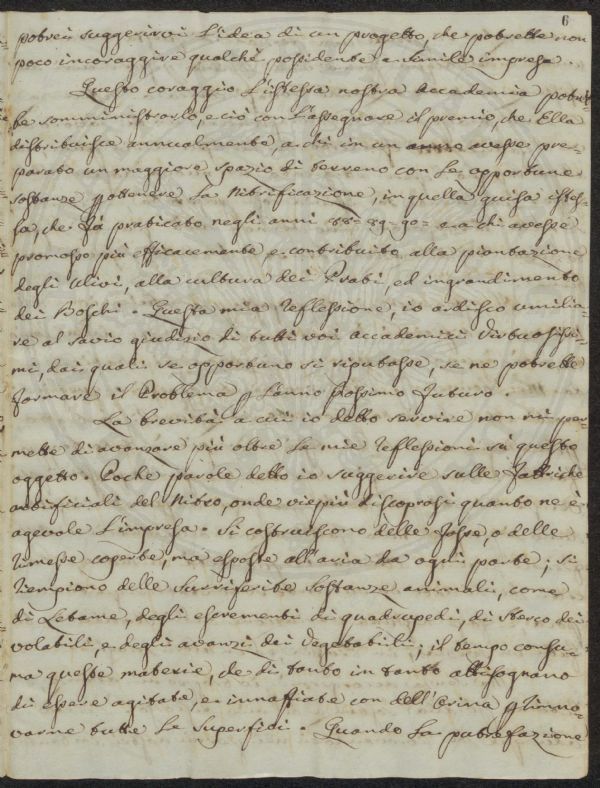 6
potrei suggerirvi l'idea di un progetto, che potrebbe non
poco incoraggire qualche possidente a simile impresa.
Questo coraggio l'istessa nostra Accademia potreb
be somministrarlo, e ciò con l'assegnare il premio, che Ella
distribuisce annualmente, a chi in un anno avesse pre-
parato un maggiore spazio di terreno con le opportune
sostanze p ottenere la Nitrificazione, in quella guisa istes-
sa, che fà praticato negli anni 88= 89= 90= a chi avesse
promosso più efficacemente e contribuito alla piantazione
degli Ulivi, alla cultura dei Prati, ed ingrandimento
dei Boschi. Questa mia riflessione, io ardisco umilia-
re al savio giudizio di tutti voi accademici Virtuosissi-
mi, dai quali se opportuno si riputasse, se ne potrebbe
formare il Problema p l'anno prossimo futuro.
La brevità a cui io debbo servire non mi per-
mette di avanzare più oltre le mie riflessioni sù questo
oggetto. Poche parole debbo io suggerire sulle fabbriche
artificiali del Nitro, onde viepiù discoprasi quanto ne è
agevole l'impresa. Si costruiscono delle fosse, o delle
rimesse coperte, ma esposte all'aria da ogni parte; si
riempiono delle surriferite sostanze animali, come
di Letame, degli escrementi di quadrupedi, di sterco dei
volatili, e degli avanzi dei Vegetabili; il tempo consu-
ma queste materie, che di tanto in tanto abbisognano
di essere agitate, e innaffiate con dell'Orina p rinno-
varne tutte le superficii. Quando la putrefazione